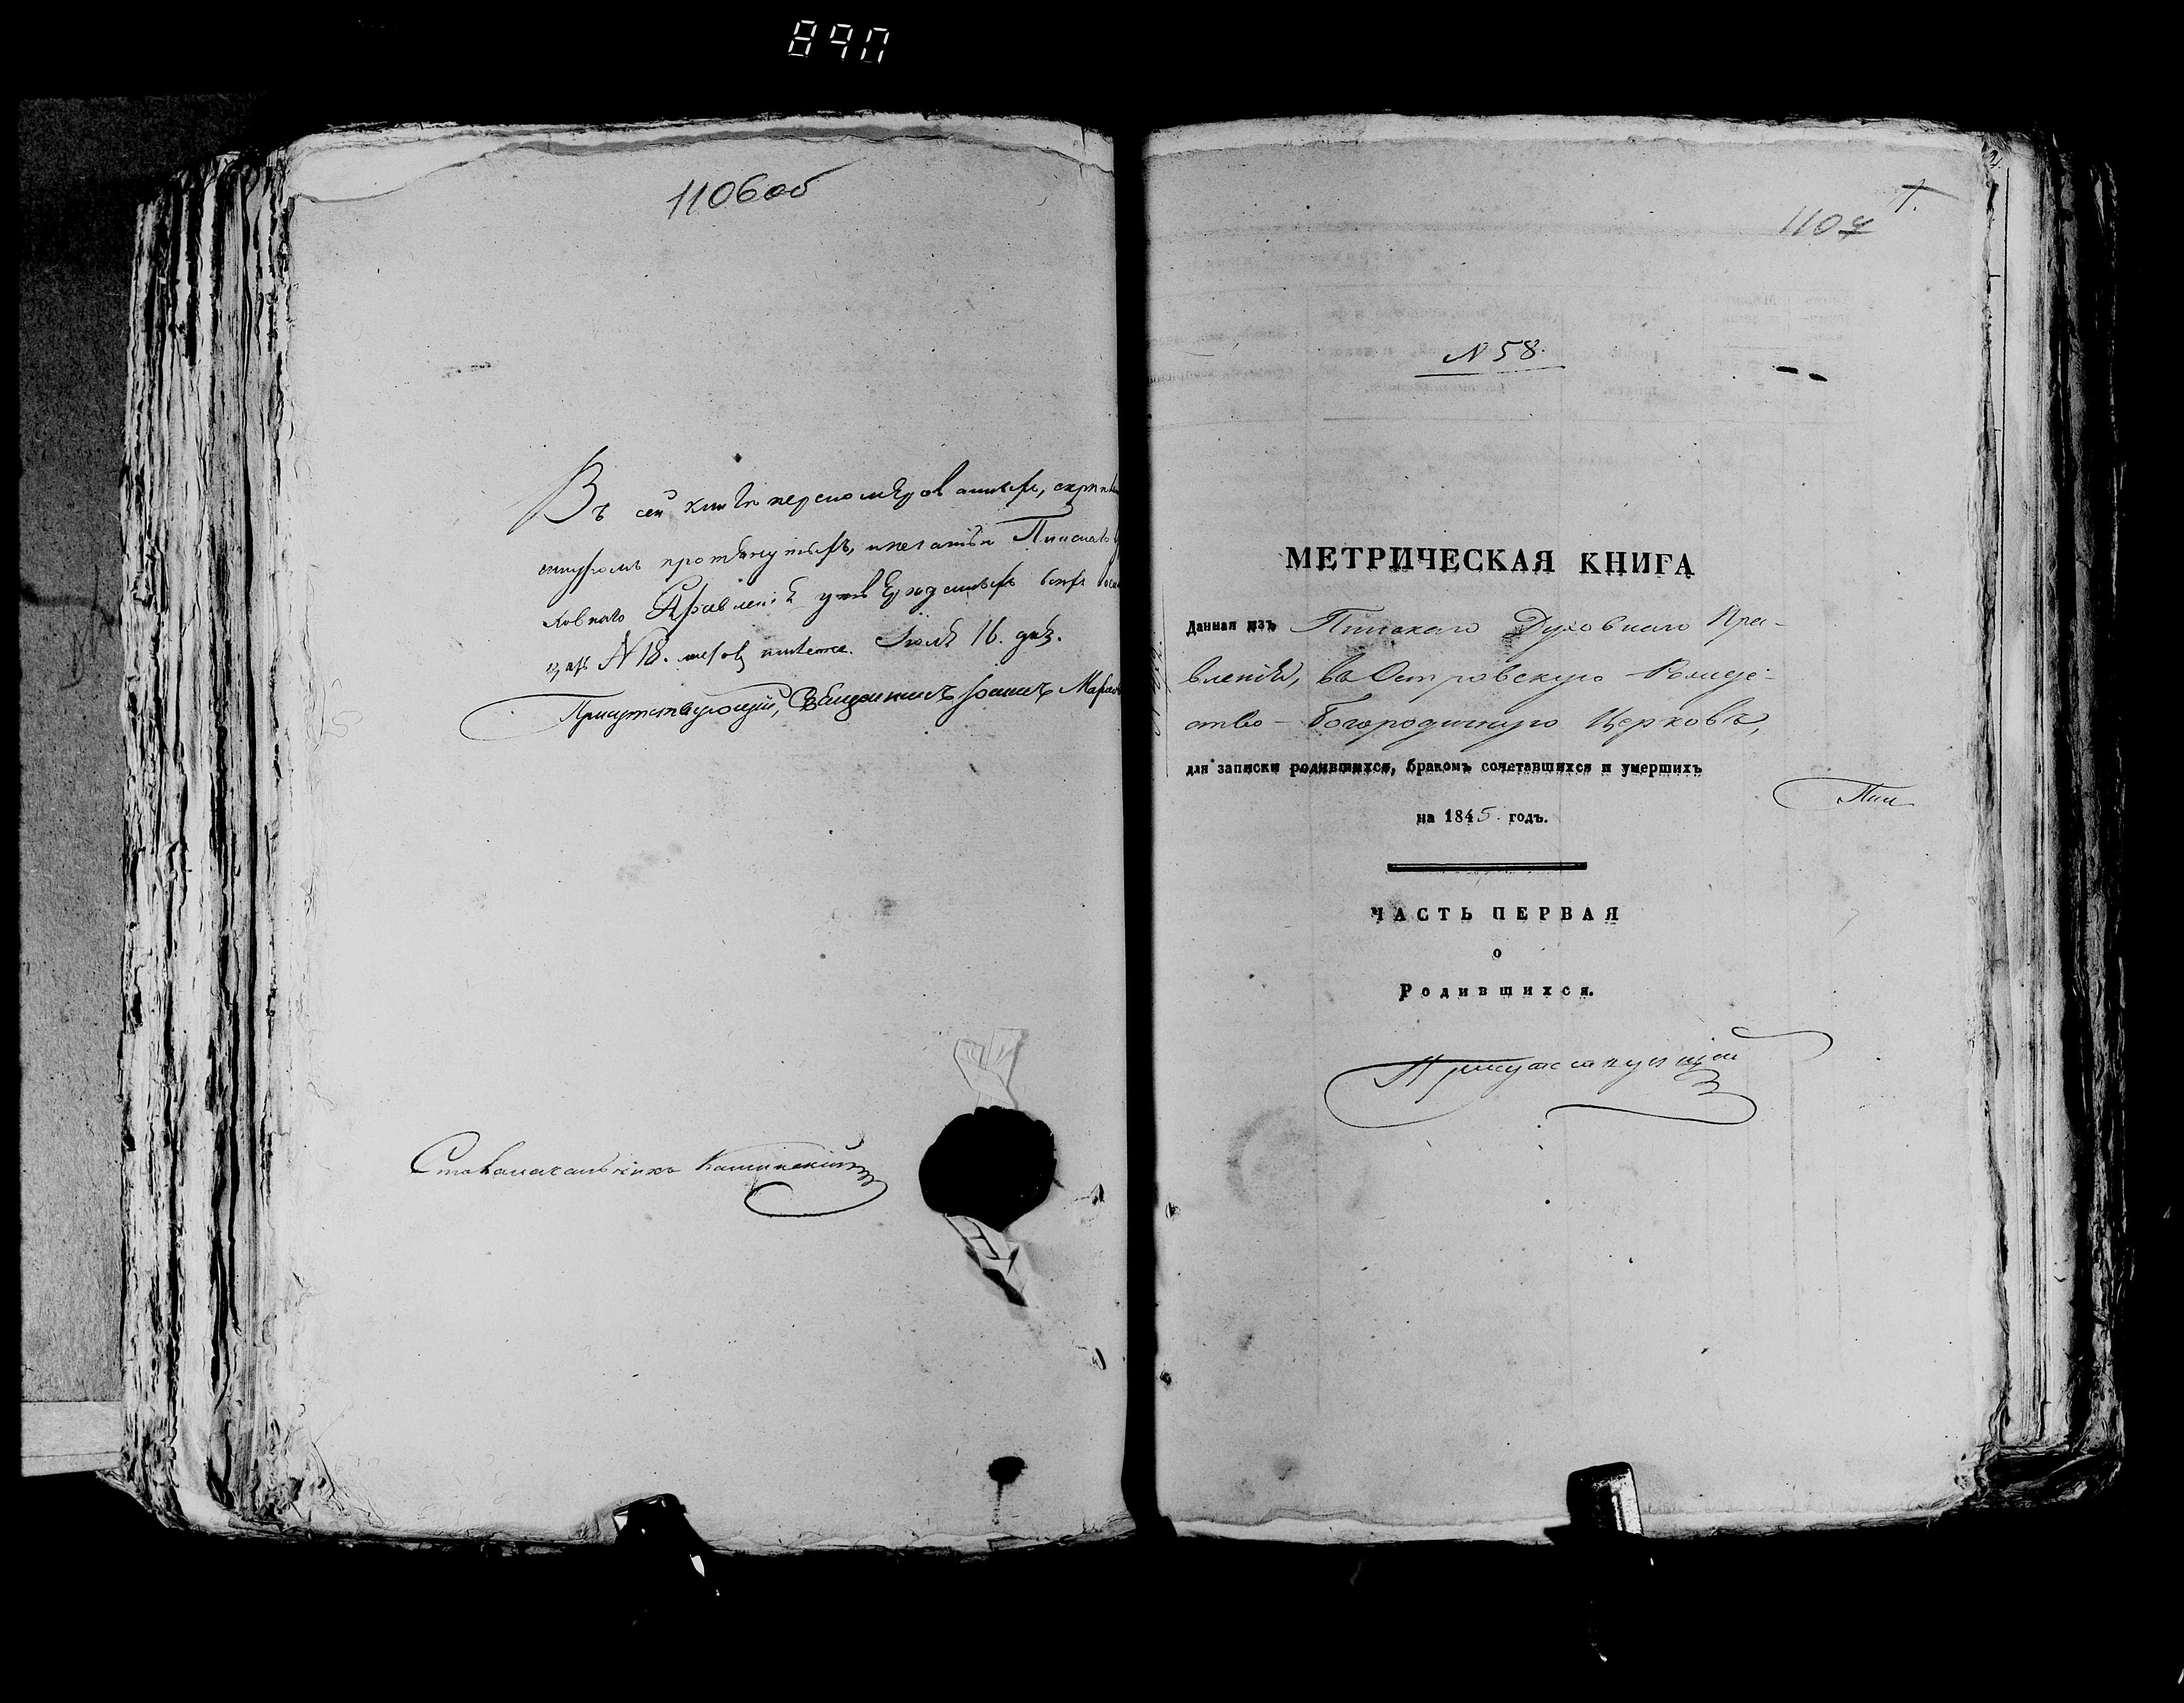 890
1106об
Въ сей книгѣ перенумерованныхъ,
шнуромъ протянутыхъ, и печатью Пинскаго
ховнаго Правленія утвержденныхъ всѣхъ
N 18. листовъ имѣется. Іюля 16. дня.
Присутствующій, Священникъ Іоаннъ
Столоначальникъ Каминскій
1.
1107
N 58.
МЕТРИЧЕСКАЯ КНИГА
Данная изъ Пинскаго Духовнаго Пра-
вленія, въ Островскую Рожде-
ство-Богородичную Церковь,
для записки родившихся, бракомъ сочетавшихся и умершихъ
Пин
на 1845. годъ.
ЧАСТЬ ПЕРВАЯ
о
Родившихся.
Присутствующій